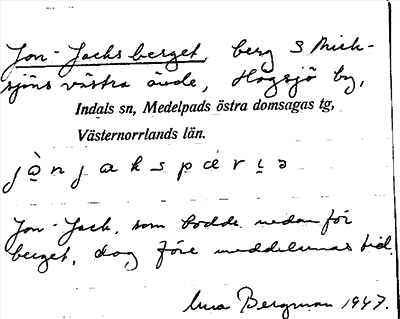 Jon-Jacks berget, berg S Mick-
sjöns västra ände, Högsjö by,
Indals sn, Medelpads östra domsagas tg,
Västernorrlands län.
Jon-Jack, som bodde nedanför
berget, dog före meddelarnas tid.
Bergman 1947.